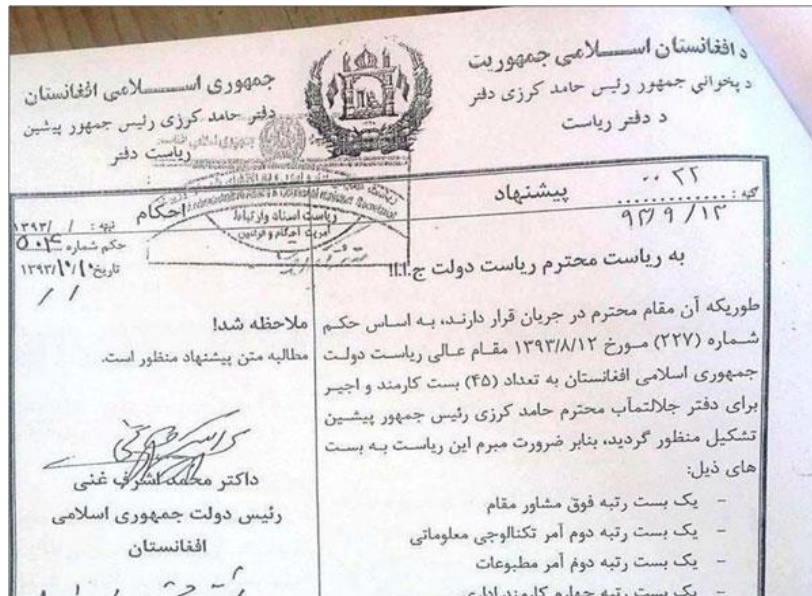 د افغانستان اســـلامی جمهوریت
د پخوانی جمهور رئیس حامد کرزی دفتر
د دفتر ریاست
جمهوری اســـــلامی افغانستان
دفتر حامد کرزی رئیس جمهور پیشین
ریاست دفتر
گڼه :
۰۰ ۲۲
پیشنهاد
احکام
نېټه : / /۱۳۹۳
حکم شماره ۵۰۴
تاریخ ۱۰/۱۰/۱۳۹۳
ریاست اسناد وارتباط
به ریاست محترم ریاست دولت ج.ا.ا!
طوریکه آن مقام محترم در جریان قرار دارند، به اساس حکم
شـماره (۲۲۷) مـورخ ۱۳۹۳/۸/۱۲ مقـام عـالی ریاسـت دولـت
جمهوری اسلامی افغانستان به تعداد (۴۵) بست کارمند و اجیـر
برای دفتر جلالتمآب محترم حامد کرزی رئیس جمهور پیشـین
تشکیل منظور گردید، بنابر ضرورت مبرم این ریاست بـه بسـت
های ذیل:
- یک بست رتبه فوق مشاور مقام
- یک بست رتبه دوم آمر تکنالوجی معلوماتی
- یک بست رتبه دوم آمر مطبوعات
- یک بست رتبه چهارم کارمند اداری
ملاحظه شد!
مطالبه متن پیشنهاد منظور است.
داکتر محمد اشرف غنی
رئیس دولت جمهوری اسلامی
افغانستان